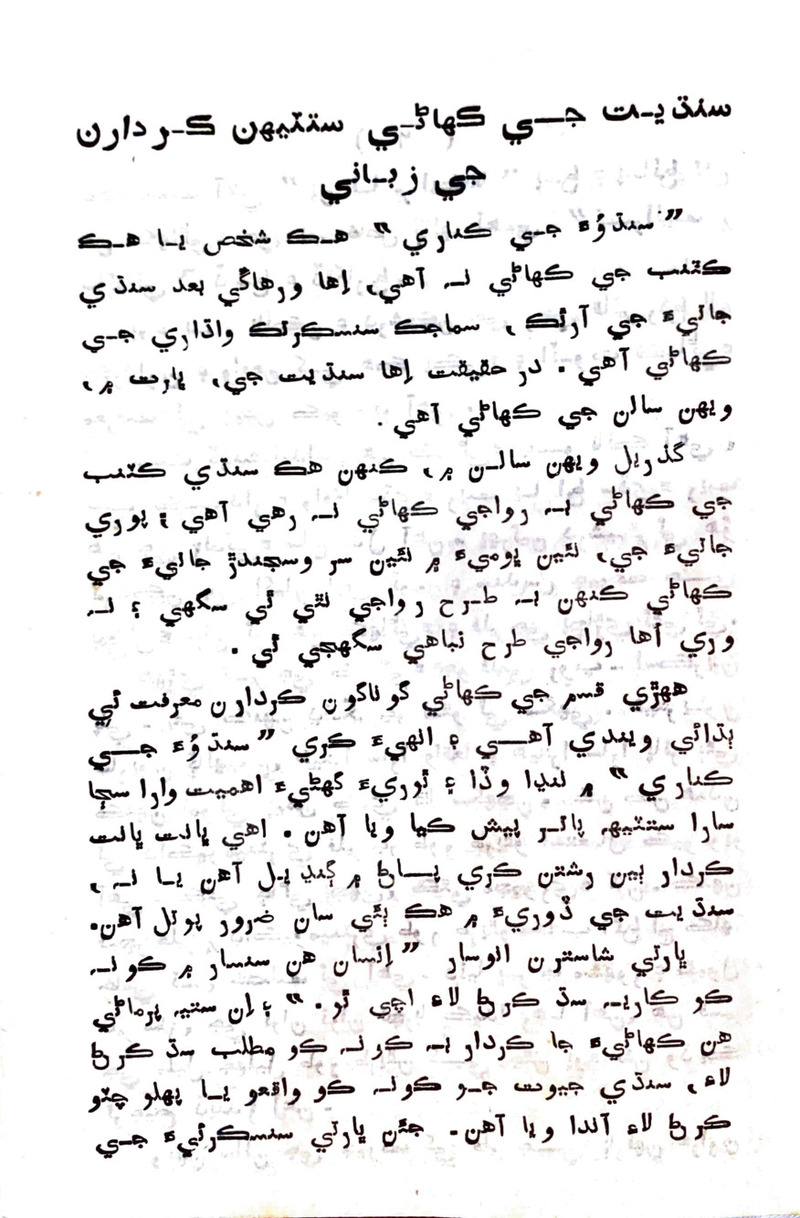 سنڌيت جي ڪهاڻي ستٽيهن ڪردارن
جي زباني
”سنڌوُءَ جي ڪناري“ هڪ شخص يا هڪ
ڪٽنب جي ڪهاڻي نہ آهي، اِها ورهاڱي بعد سنڌي
جاتيءَ جي آرٿڪ، سماجڪ سنسڪرتڪ واڌاري جي
ڪهاڻي آهي. در حقيقت اِها سنڌيت جي، ڀارت ۾،
ويهن سالن جي ڪهاڻي آهي.
گذريل ويهن سالن ۾، ڪنهن هڪ سنڌي ڪٽنب
جي ڪهاڻي بہ رواجي ڪهاڻي نہ رهي آهي ۽ پوري
جاتيءَ جي، نئين ڀوميءَ ۾ نئين سر وسجندڙ جاتيءَ جي
ڪهاڻي ڪنهن بہ طرح رواجي نٿي ٿي سگهي ۽ نہ
وري اُها رواجي طرح نباهي سگهجي ٿي.
ههڙي قسم جي ڪهاڻي گوناگون ڪردارن معرفت ئي
ٻڌائي ويندي آهي ۽ انهيءَ ڪري ”سنڌوُءَ جي
ڪناري“ ۾ ننڍا وڏا ۽ ٿوريءَ گهڻيءَ اهميت وارا سڄا
سارا ستٽيهہ پاتر پيش ڪيا ويا آهن. اهي ڀانت ڀانت
ڪردار ٻين رشتن ڪري پاڻ ۾ ڳنڍيل آهن يا نہ،
سنڌيت جي ڏوريءَ ۾ هڪ ٻئي سان ضرور پوتل آهن.
ڀارتي شاسترن انوسار ”اِنسان هن سنسار ۾ ڪونہ
ڪو ڪاريہ سڌ ڪرڻ لاءِ اچي ٿو.“ ۽ اِن ستيہ پرماڻي
هن ڪهاڻيءَ جا ڪردار بہ ڪونہ ڪو مطلب سڌ ڪرڻ
لاءِ، سنڌي جيوت جو ڪونہ ڪو واقعو يا پهلو چٽو
ڪرڻ لاءِ آندا ويا آهن. جئن ڀارتي سنسڪرتيءَ جي